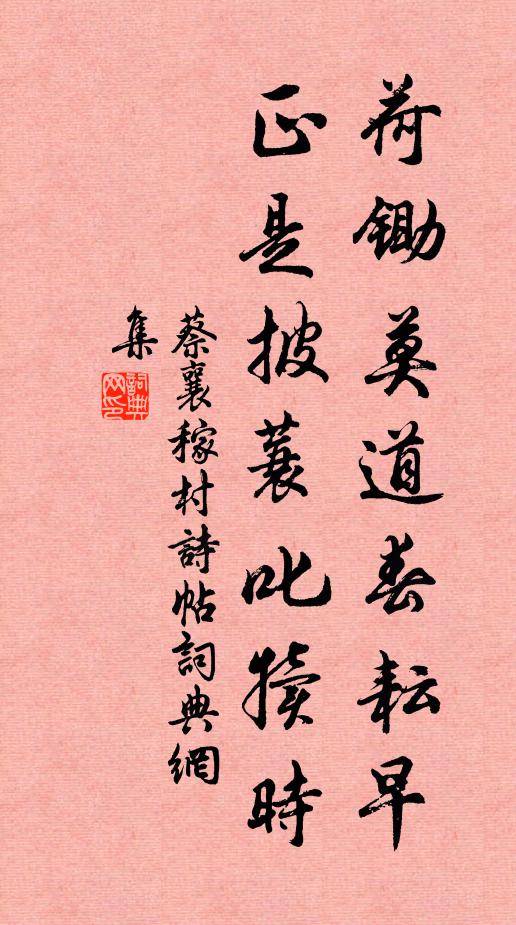 荷鋤莫道春耘早
正是披蓑叱犢時
蔡襄稼村詩帖詞典網
集
詞典網印